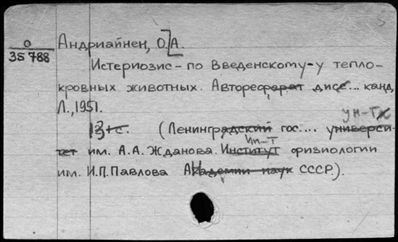 О
35 788
Андриайнен, О.А.
Истериозис - по Введенскому - у тепло-
кровных животных. Автореферат дисс... канд.
Л., 1951.
13 с. (Ленинградский гос.... университет
ун-т
им. А.А. Жданова. Институт физиологии
ин-т
им. И.П. Павлова Академии наук СССР).